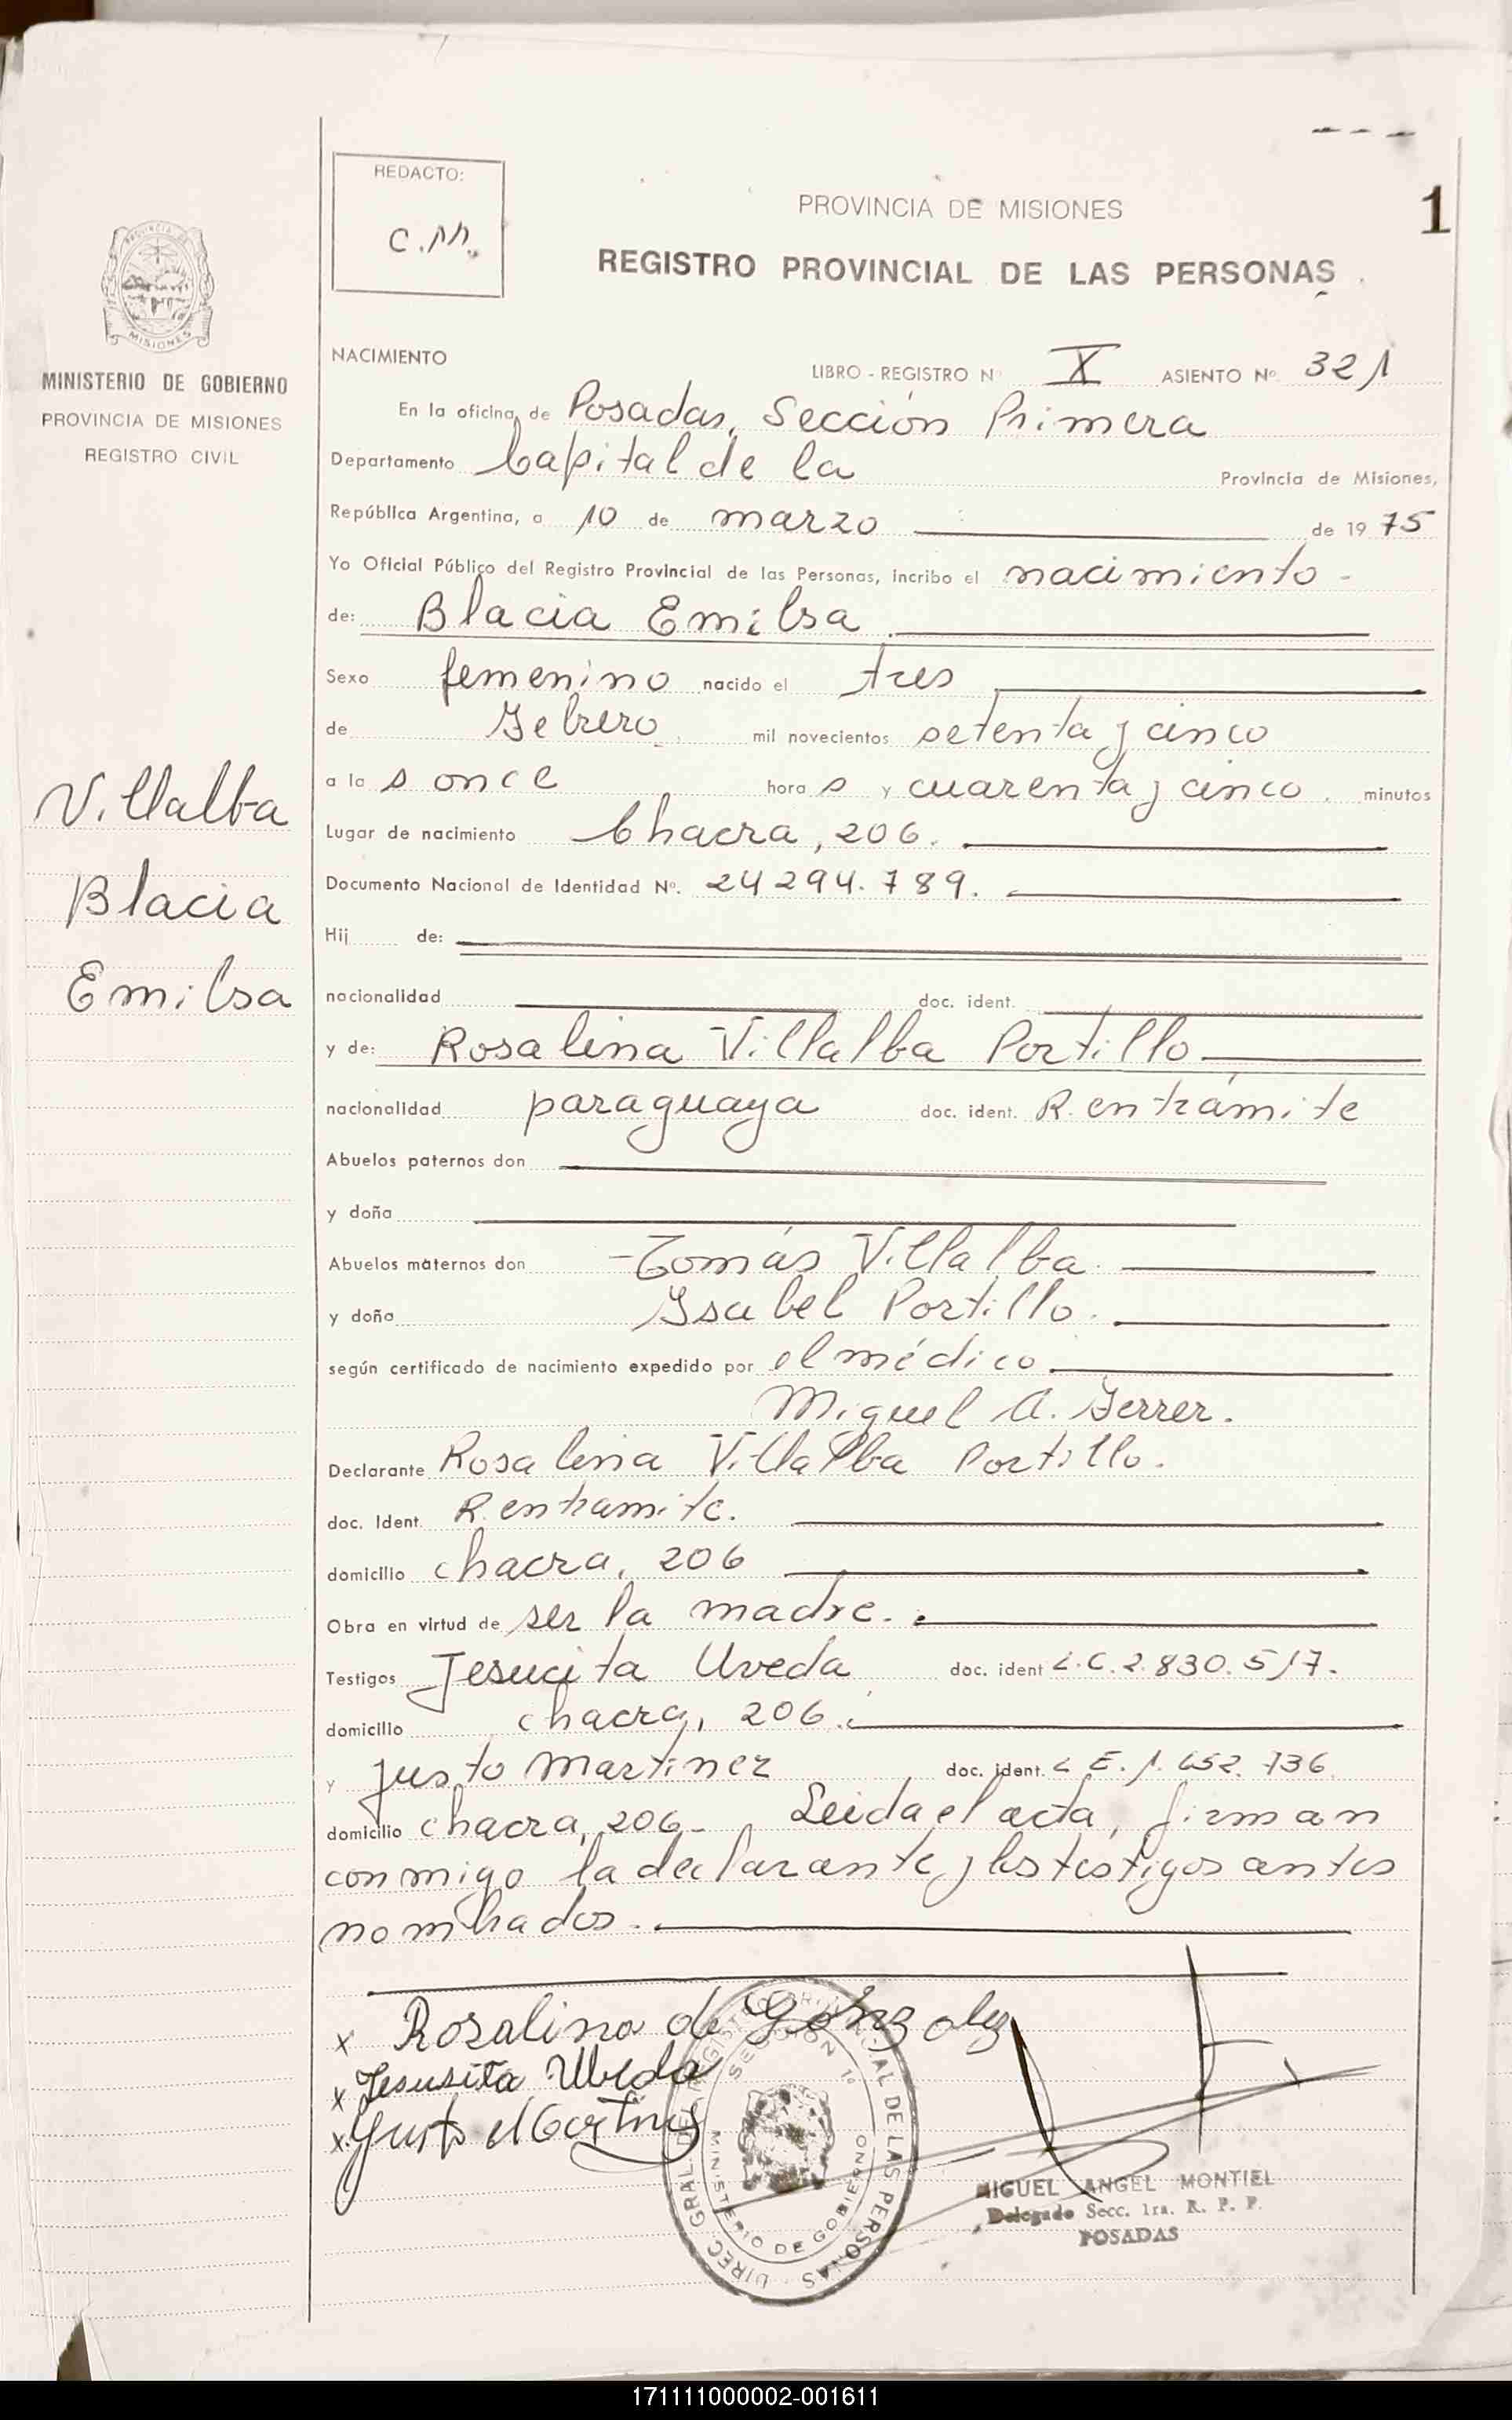 REDACTO:
C.M.
PROVINCIA DE MISIONES
1
REGISTRO PROVINCIAL DE LAS PERSONAS
MISIONES
MINISTERIO DE GOBIERNO
PROVINCIA DE MISIONES
REGISTRO CIVIL
NACIMIENTO
LIBRO - REGISTRO Nº X ASIENTO Nº 321
En la oficina de Posadas, Sección Primera
Departamento Capital de la Provincia de Misiones,
República Argentina, a 10 de marzo de 1975
Yo Oficial Público del Registro Provincial de las Personas, incribo el nacimiento -
de: Blacia Emilsa
Sexo femenino nacido el tres
de Febrero mil novecientos setenta y cinco
a las once horas y cuarenta y cinco minutos
Villalba
Blacia
Emilsa
Lugar de nacimiento Chacra, 206.
Documento Nacional de Identidad Nº. 24294.789.
Hij de:
nacionalidad doc. ident.
y de: Rosalina Villalba Portillo
nacionalidad paraguaya doc. ident. R. en trámite
Abuelos paternos don
y doña
Abuelos maternos don - Tomás Villalba.
y doña Isabel Portillo.
según certificado de nacimiento expedido por el médico
Miguel A. Ferrer.
Declarante Rosalina Villalba Portillo.
doc. Ident. R. en tramite.
domicilio chacra, 206
Obra en virtud de ser la madre.
Testigos Jesucita Uveda doc. ident L.C. 2.830.517.
domicilio chacra, 206.
y Justo Martinez doc. ident. L E. 1.652.736
domicilio chacra, 206- Leida el acta, firman
conmigo la declarante y los testigos antes
nombrados.
x Rosalina de Gonzalez
x Jesusita Ubeda
x Justo Martinez
DIREC. GRAL. DEL REGISTRO PROVINCIAL DE LAS PERSONAS
SECCION 1ª
MINISTERIO DE GOBIERNO
MIGUEL ANGEL MONTIEL
Delegado Secc. 1ra. R. P. P.
POSADAS
171111000002-001611